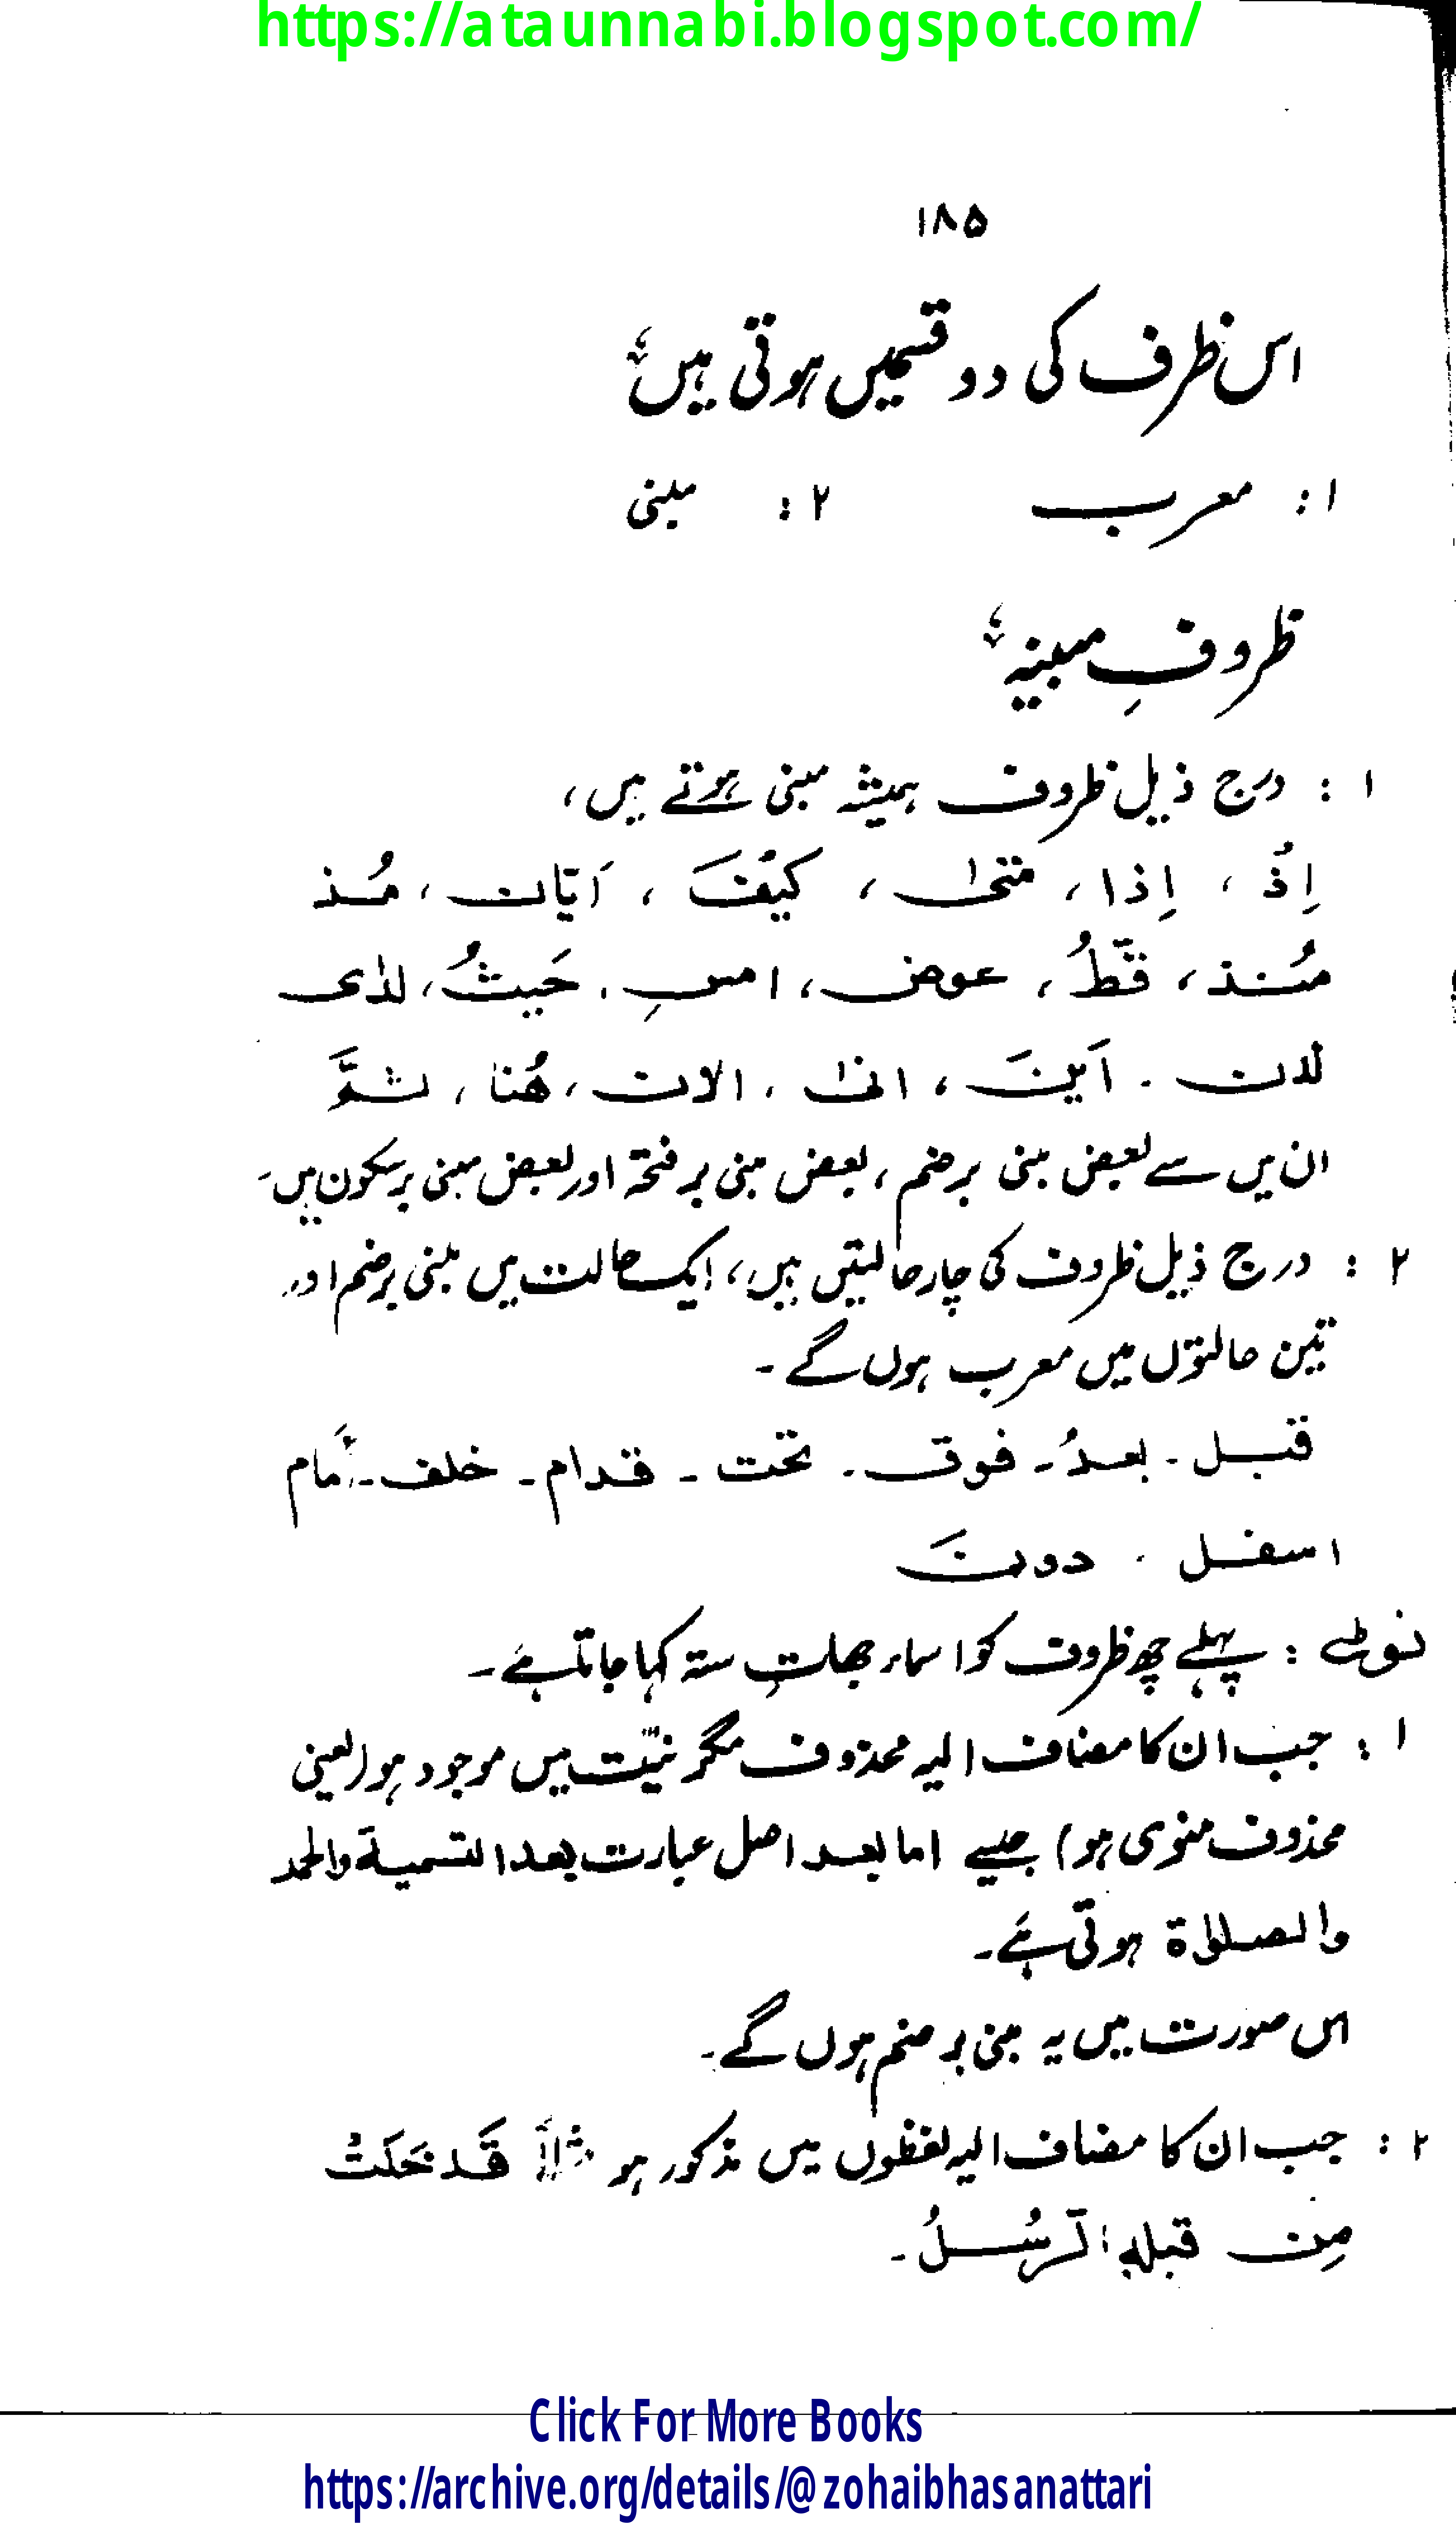 https://ataunnabi.blogspot.com/
۱۸۵
اس ظرف کی دو قسمیں ہوتی ہیں؛
۱: معرب ۲: مبنی
ظروفِ مبینہ؛
۱ : درج ذیل ظروف ہمیشہ مبنی ہوتے ہیں،
اِذُ ، اِذا، متیٰ ، کیُفَ ، اَیّان ، مُذ
مُنذ، قَطُّ ، عوض، امسِ ، حَیثُ، لدٰی
لدن ۔ اَینَ ، انیٰ ، الان ، هُنا ، ثَمَّ
ان میں سے بعض مبنی برضم ، بعض مبنی بر فتحۃ اور بعض مبنی برسکون ہیں۔
۲ : درج ذیل ظروف کی چار حالتیں ہیں، ایک حالت میں مبنی برضم اور
تین حالتوں میں معرب ہوں گے ۔
قبل ۔ بعدُ ۔ فوق ۔ تحت ۔ قدام ۔ خلف ۔ اَمام
اسفل ۔ دونَ
نوٹ : پہلے چھ ظروف کو اسماء جہاتِ ستہ کہا جاتا ہے ۔
۱ : جب ان کا مضاف الیہ محذوف مگر نیّت میں موجود ہو (یعنی
محذوف منوی ہو) جیسے اما بعد اصل عبارت بعد التسمیة والحمد
والصلوٰة ہوتی ہے۔
اس صورت میں یہ مبنی بر ضم ہوں گے۔
۲ : جب ان کا مضاف الیہ لفظوں میں مذکور ہو مثلاً قَد خَلَتُ
مِن قبلهِ الرسُلُ ۔
Click For More Books
https://archive.org/details/@zohaibhasanattari